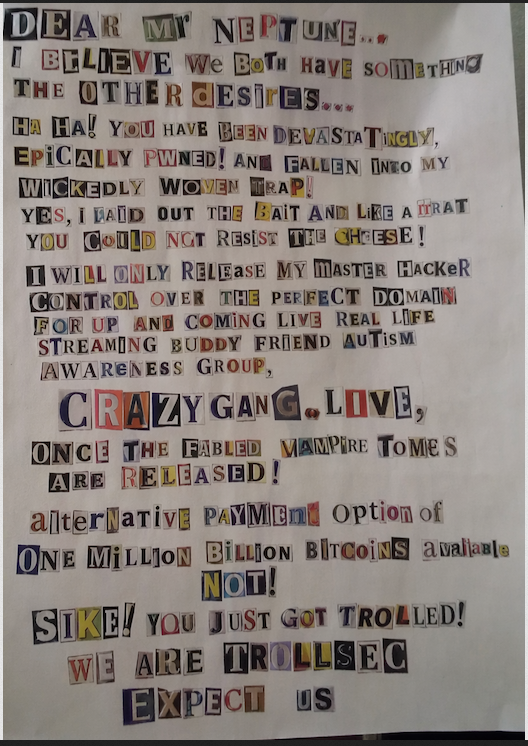 DEAR Mr NEPTUNE...
I BELIEVE We BoTH HAVe SOmETHING
THE OTHER desires...
HA HA! YOU HAVE BEEN DEVASTATINGLY,
EPiCALLY PWNED! ANd FALLEN INTO MY
WICKEDLY WOVEN TRAP!
YES, I LAID OUT THE BAiT AND LiKE A TRAT
YOU COULD NOT RESIST THE CHEESE!
I WILL ONLY RELEASE MY mASTER HACKeR
CONTROL OVER THE PERFECT DOMAIN
FOR UP AND COMING LIVE REAL LIFE
STREAMING BUDDY FRIEND AUTiSM
AWAReNESS GROUP,
CRAZYGANG.LIVE,
ONCE THE FABLED VAMPiRE TOMeS
ARE RELEASED!
alTerNATivE PAYMEnt OpTion of
ONE MiLLION BILLION BITCOiNS avaliable
NOT!
SIKE! YOU JUST GOT TROLLED!
WE ARE TROLLSEC
EXPECT US